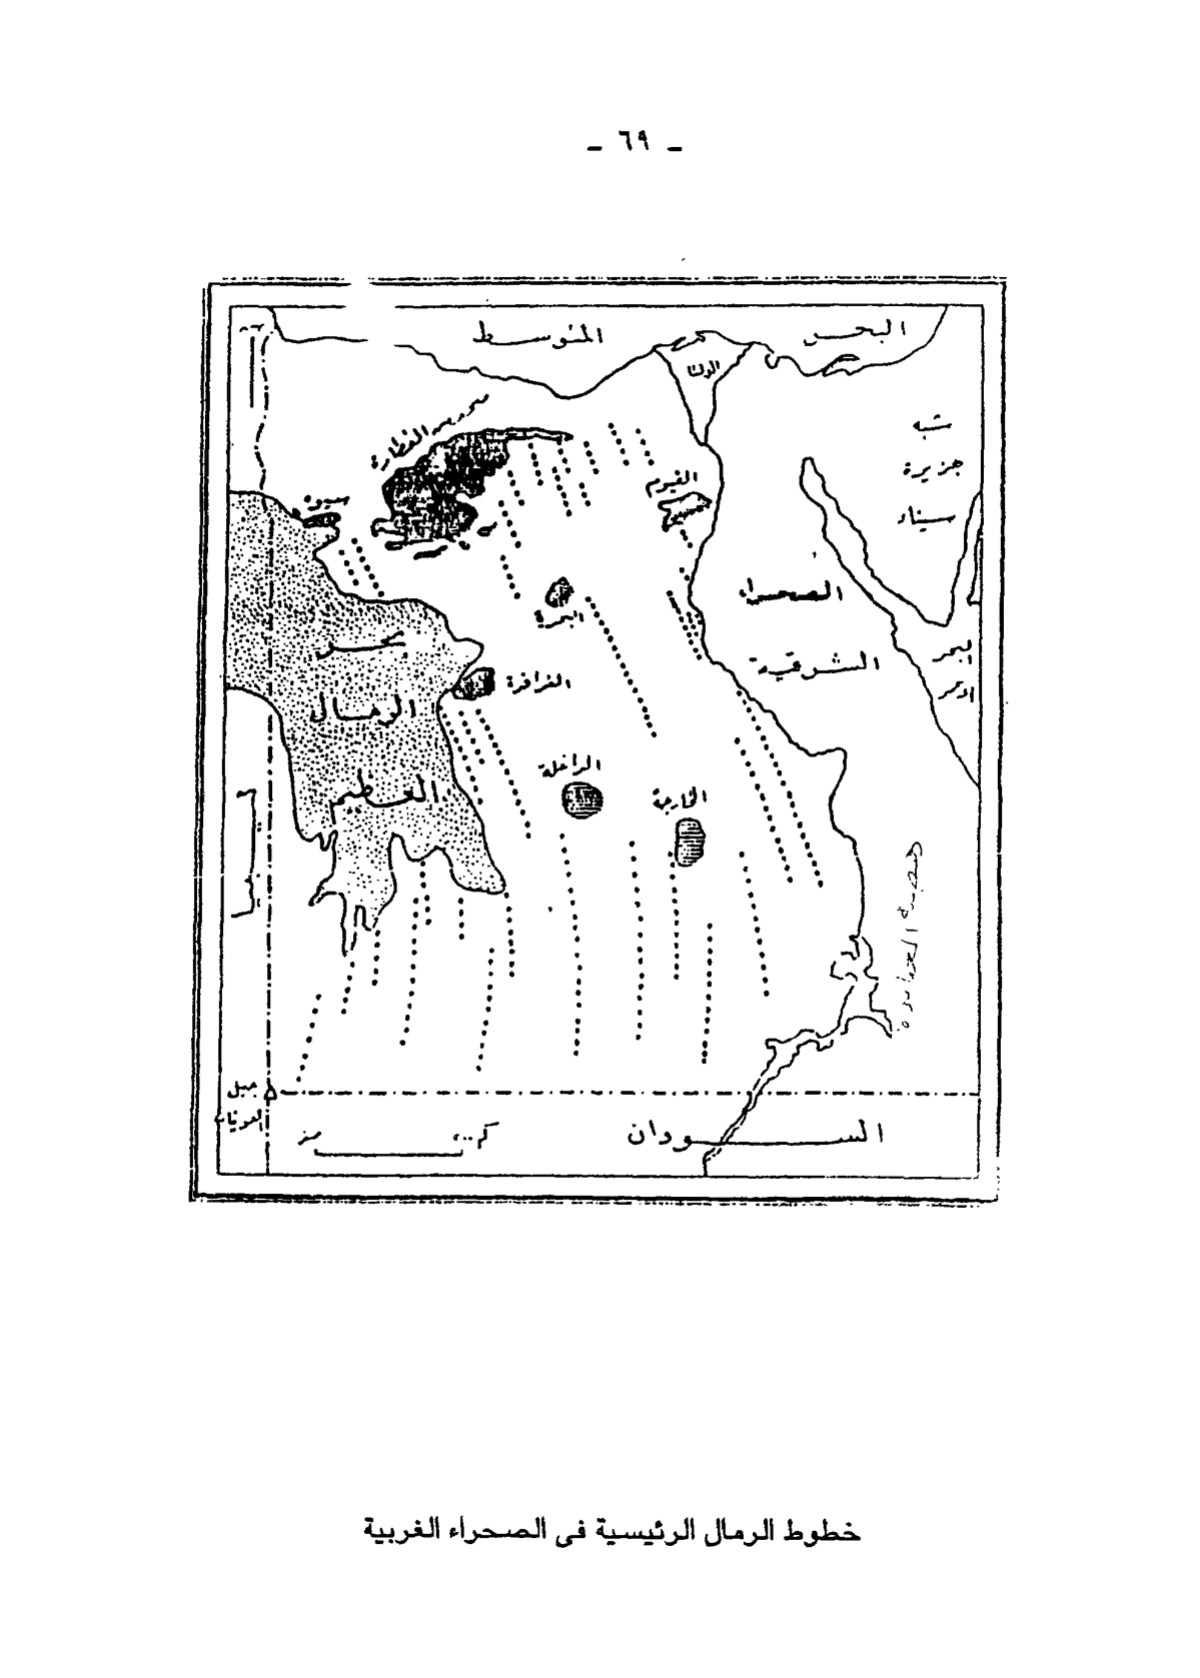 - ٦٩ -
البحر المتوسط
الدلتا
شبه
جزيرة
سيناء
منخفض القطارة
سيوة
الفيوم
الصحراء
الشرقية
البحر
الاحمر
البحرية
بحر
الرمال
العظيم
الفرافرة
الداخلة
الخارجة
ليبيا
جبل
العوينات
السودان
كم
صفر
خطوط الرمال الرئيسية فى الصحراء الغربية